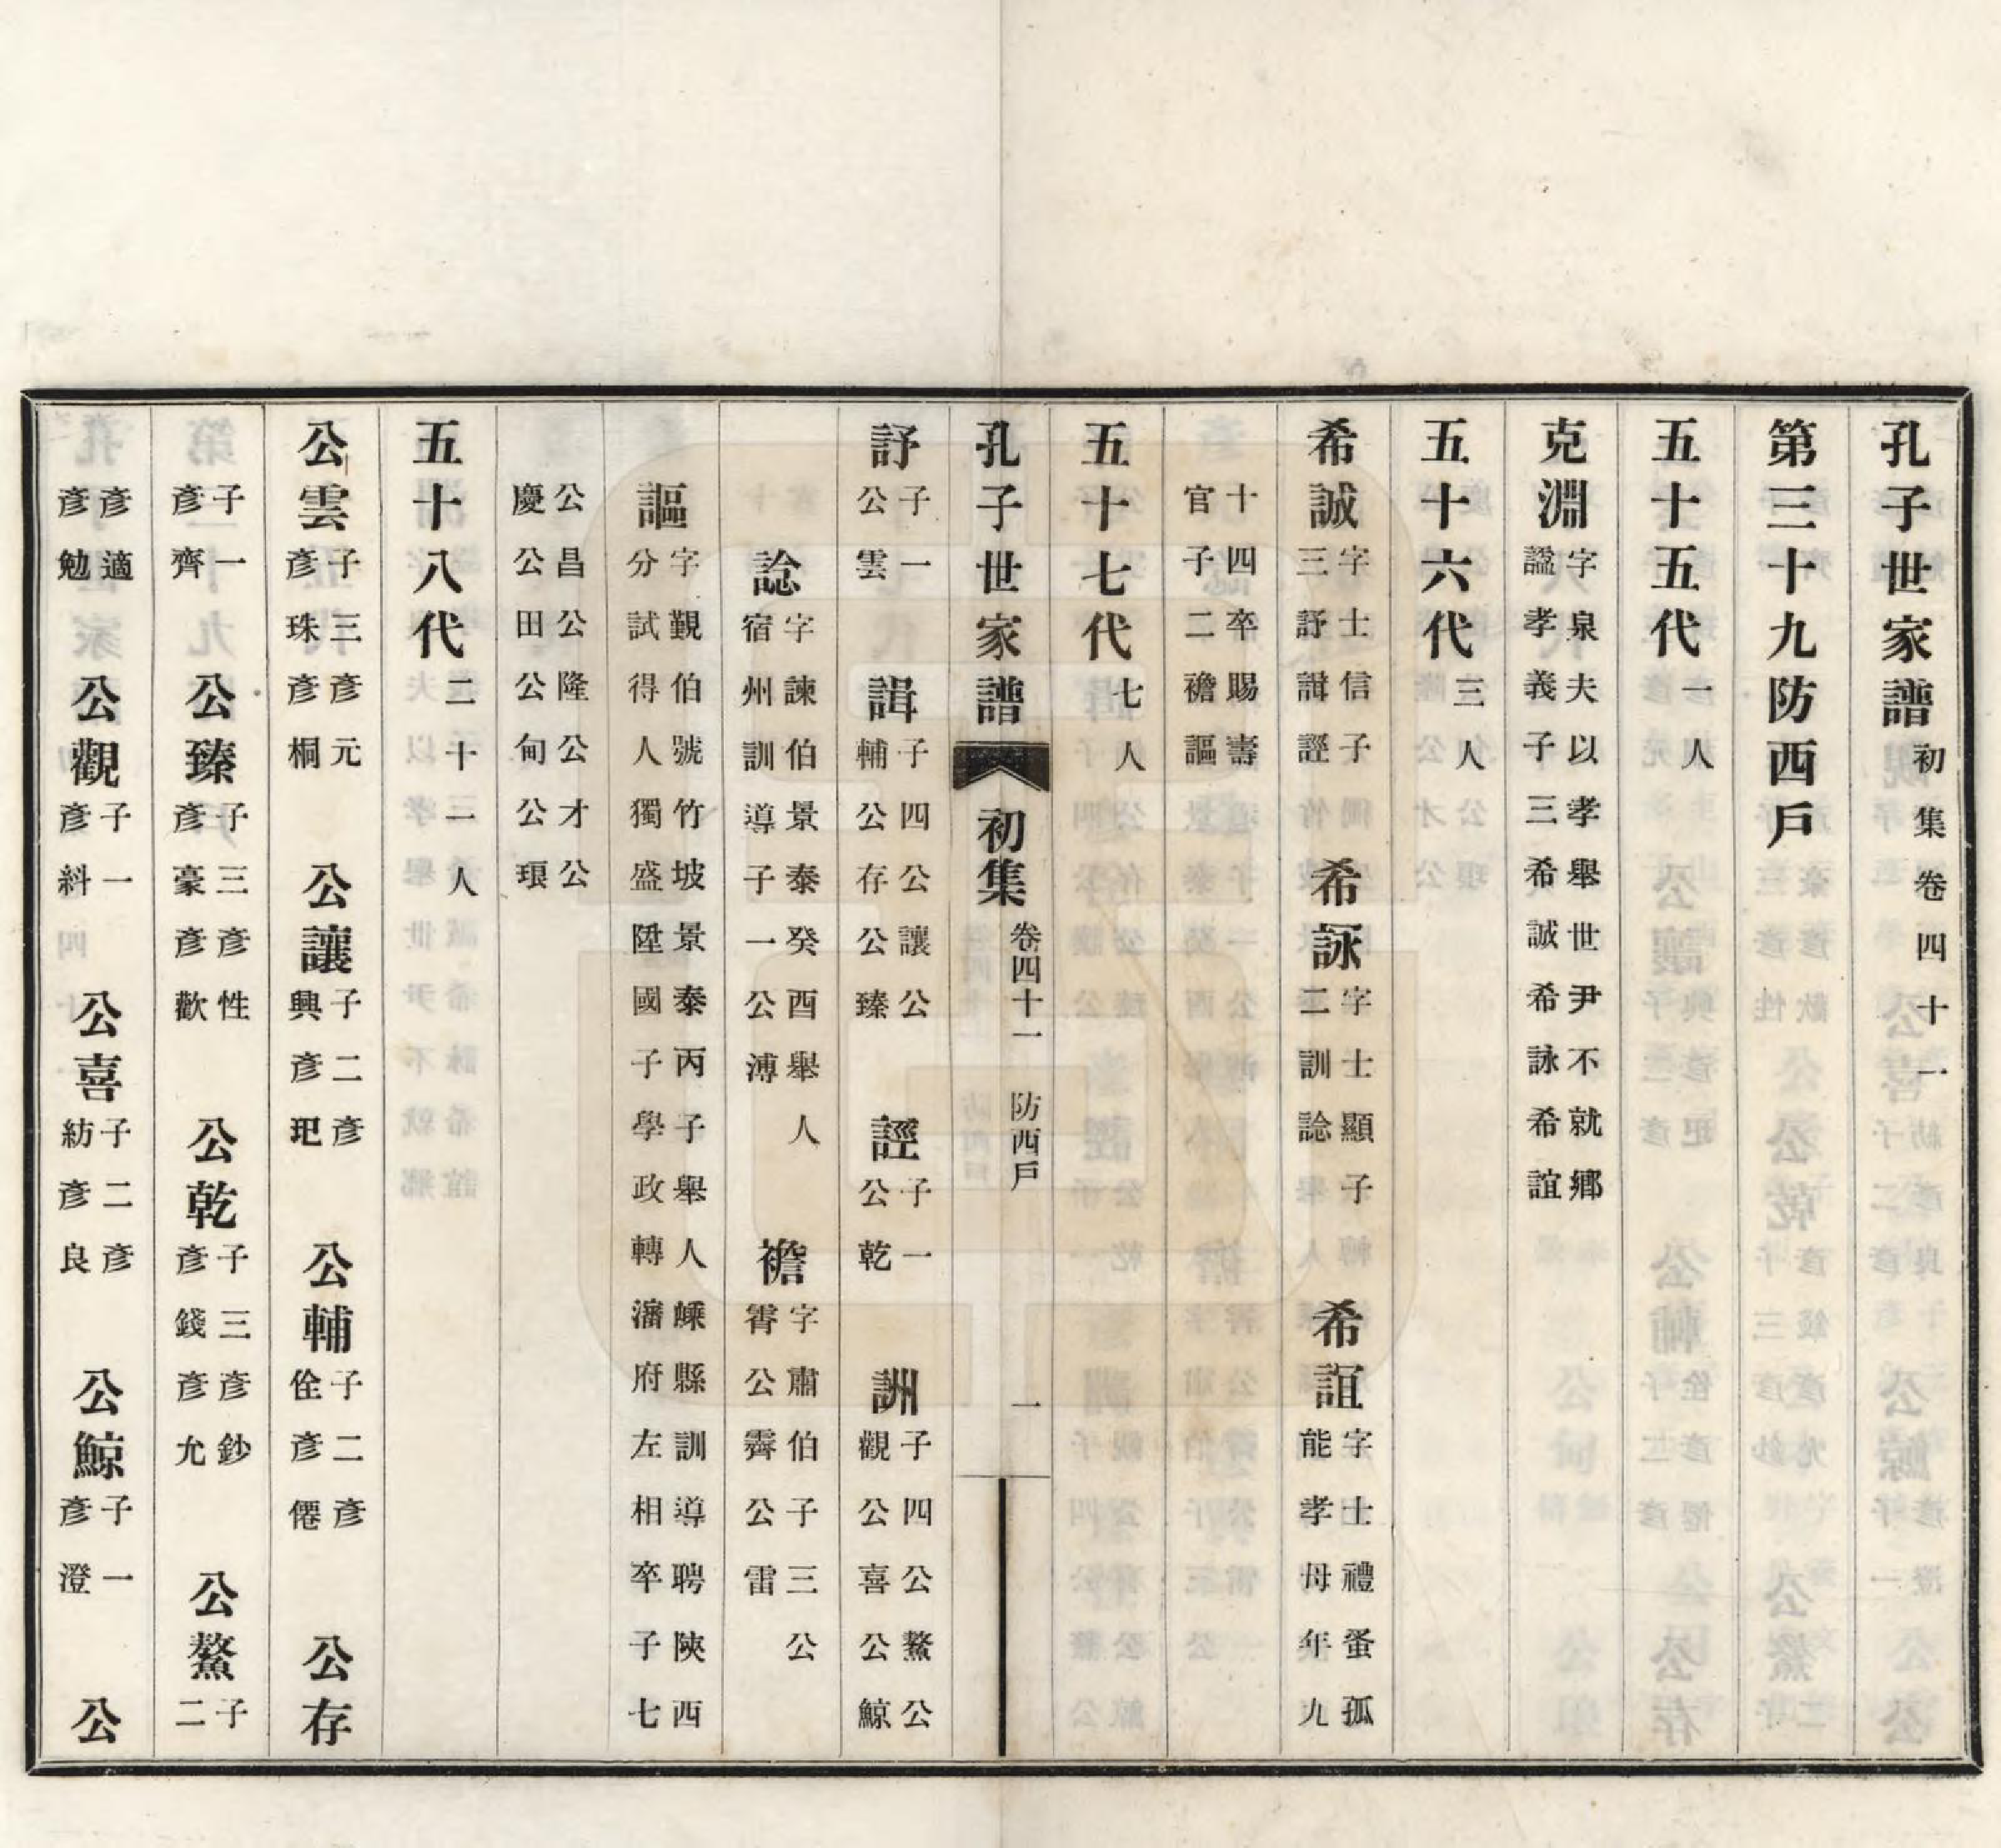 孔子世家譜初集卷四十一
第三十九防西戶
五十五代一人
克淵字泉夫以孝舉世尹不就鄉謚孝義子三希誠希詠希誼
五十六代三人
希誠字士信子三訏諿誙 希詠字士顯子二訓諗 希誼字士禮蚤孤能孝母年九
十四卒賜壽官子二襜謳
五十七代七人
孔子世家譜 初集 卷四十一 防西戶 一
訏子一公雲 諿子四公讓公輔公存公臻 誙子一公乾 訓子四公鰲公觀公喜公鯨
諗字諫伯景泰癸酉舉人宿州訓導子一公溥 襜字肅伯子三公霄公霽公雷
謳字覲伯號竹坡景泰丙子舉人嵊縣訓導聘陝西分試得人獨盛陞國子學政轉瀋府左相卒子七
公昌公隆公才公慶公田公甸公琅
五十八代二十三人
公雲子三彥元彥珠彥桐 公讓子二彥興彥玘 公輔子二彥佺彥僊 公存
子一彥齊 公臻子三彥性彥豪彥歡 公乾子三彥鈔彥錢彥允 公鰲子二
彥適彥勉 公觀子一彥糾 公喜子二彥紡彥良 公鯨子一彥澄 公